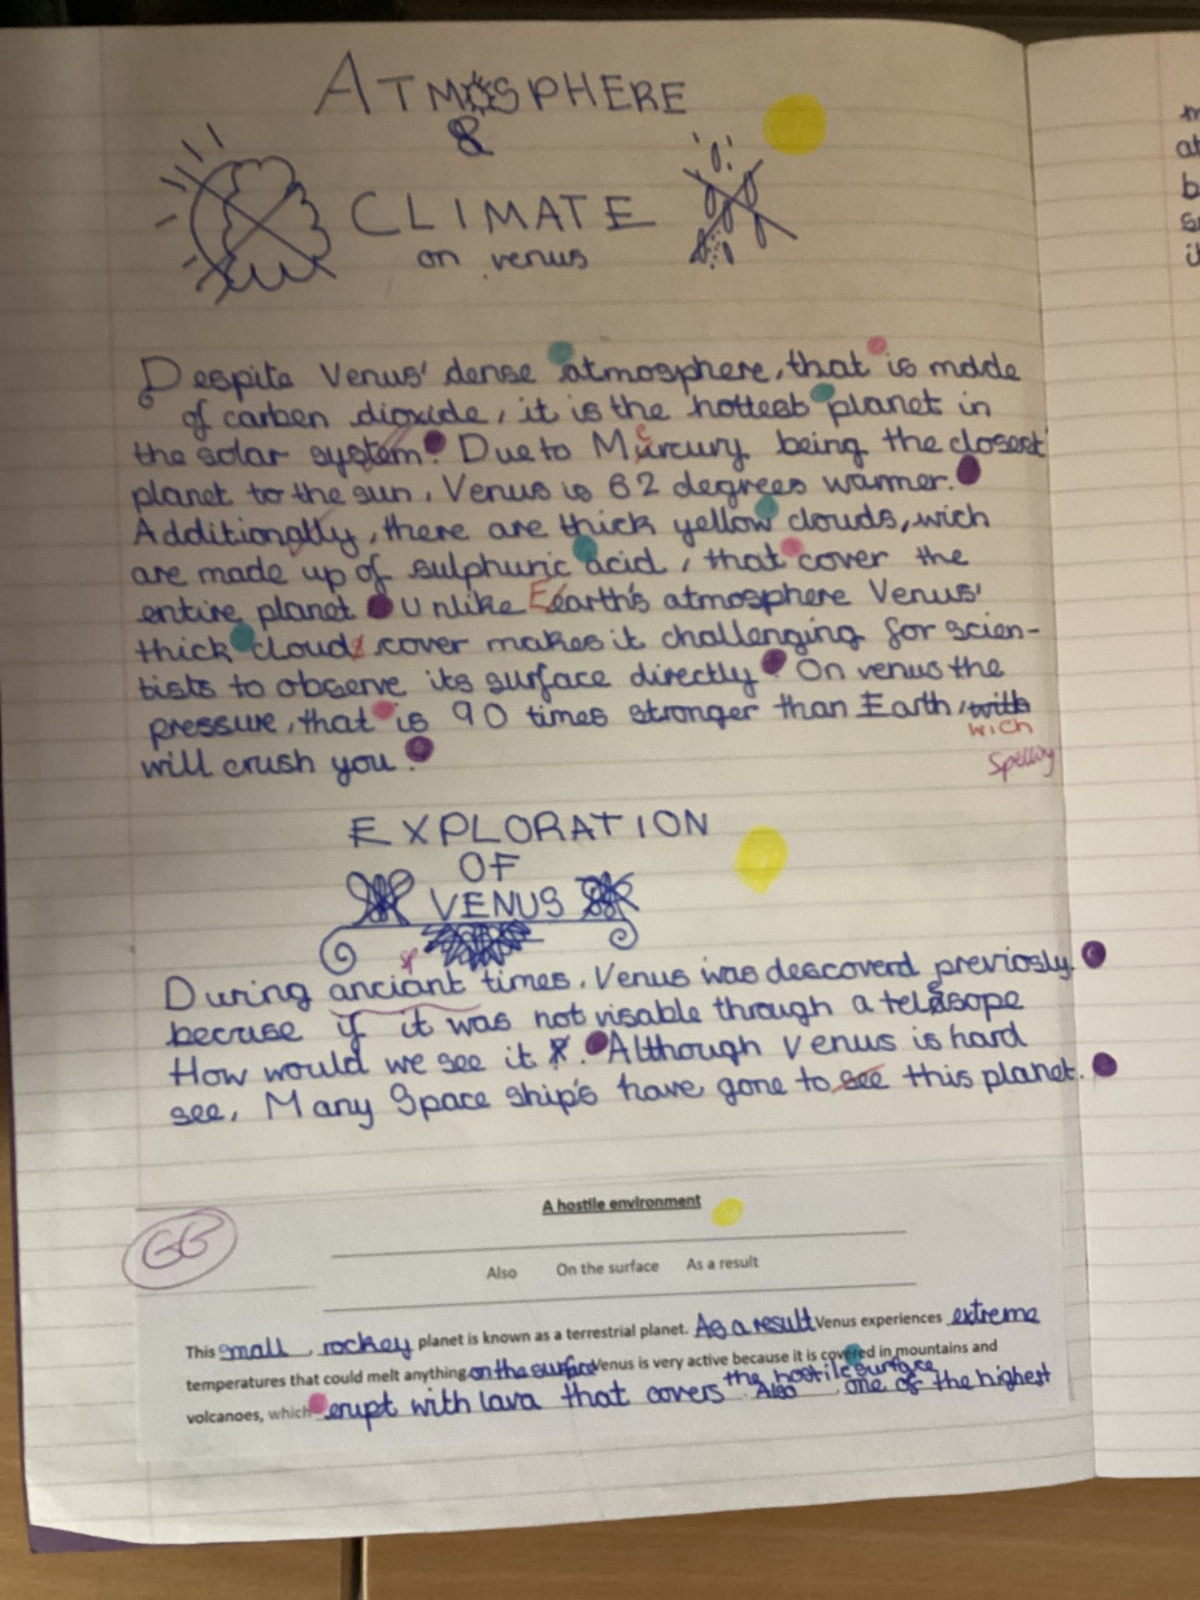 ATMOSPHERE
&
CLIMATE
on venus
Despite Venus' dense atmosphere, that is made
of carben dioxide, it is the hottest planet in
the solar system. Due to Mercury being the closest
planet to the sun, Venus is 62 degrees warmer.
Additionally, there are thick yellow clouds, wich
are made up of sulphuric acid, that cover the
entire planet. Unlike Earth's atmosphere Venus'
thick cloud cover makes it challenging for scien-
tists to observe its surface directly. On venus the
pressure, that is 90 times stronger than Earth, with
wich
will crush you.
Spelling
EXPLORATION
OF
VENUS
During anciant times, Venus was descoverd previosly.
becruse if it was not visable through a telesope
How would we see it. Although Venus is hard
see, Many Space ship's have gone to see this planet.
GG
A hostile environment
Also On the surface As a result
This small, rockey planet is known as a terrestrial planet. As a result Venus experiences extreme
temperatures that could melt anything on the surface Venus is very active because it is covered in mountains and
volcanoes, which erupt with lava that covers the hostile surface Also one of the highest